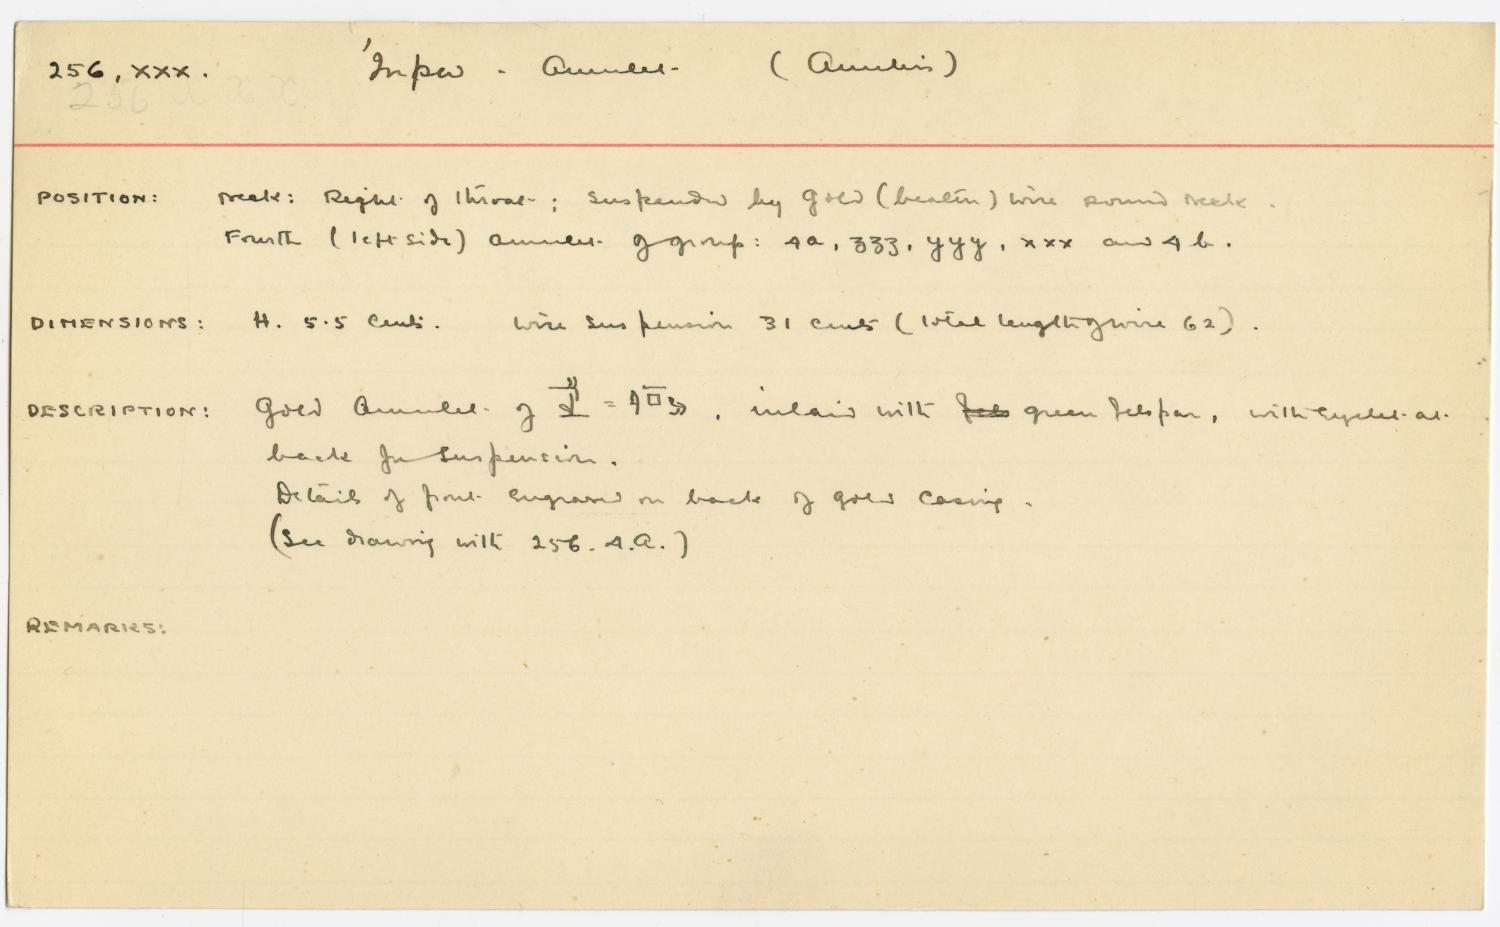 256, xxx. 'Inpw - Amulet (Anubis)
256 x x x.
POSITION: Neck: Right of throat; suspended by gold (beaten) wire round neck.
Fourth (left side) amulet of group: 4a, zzz, yyy, xxx and 4b.
DIMENSIONS: H. 5.5 cents. Wire suspension 31 cents (total length of wire 62).
DESCRIPTION: Gold amulet of = , inlaid with green felspar, with eyelet at
back for suspension.
Details of front engraved on back of gold casing.
(See drawing with 256. 4.A.)
REMARKS: